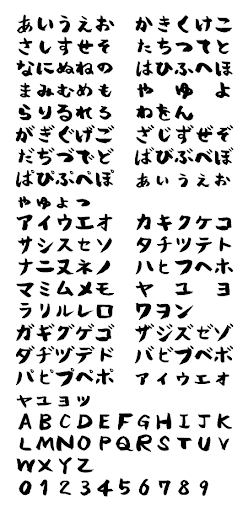 あいうえお かきくけこ
さしすせそ たちつてと
なにぬねの はひふへほ
まみむめも や ゆ よ
らりるれろ わをん
がぎぐげご ざじずぜぞ
だぢづでど ばびぶべぼ
ぱぴぷぺぽ ぁぃぅぇぉ
ゃゅょっ
アイウエオ カキクケコ
サシスセソ タチツテト
ナニヌネノ ハヒフヘホ
マミムメモ ヤ ユ ヨ
ラリルレロ ワヲン
ガギグゲゴ ザジズゼゾ
ダヂヅデド バビブベボ
パピプペポ ァィゥェォ
ャュョッ
ABCDEFGHIJK
LMNOPQRSTUV
WXYZ
0123456789